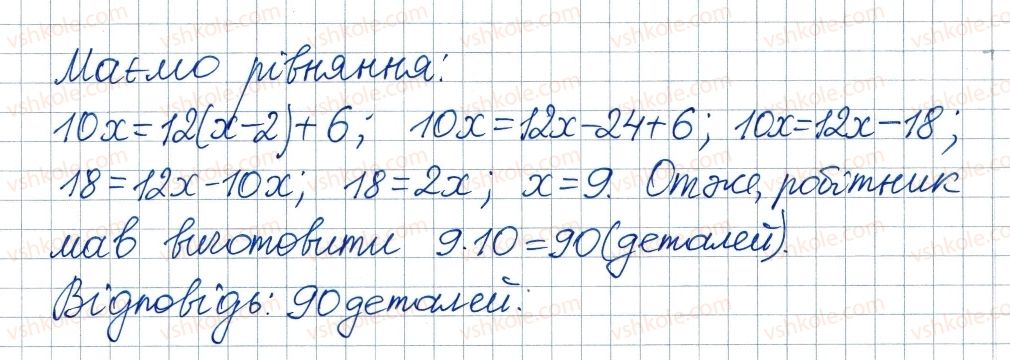 Маємо рівняння:
10x=12(x-2)+6; 10x=12x-24+6; 10x=12x-18;
18=12x-10x; 18=2x; x=9. Отже, робітник
мав виготовити 9·10=90(деталей).
Відповідь: 90 деталей.